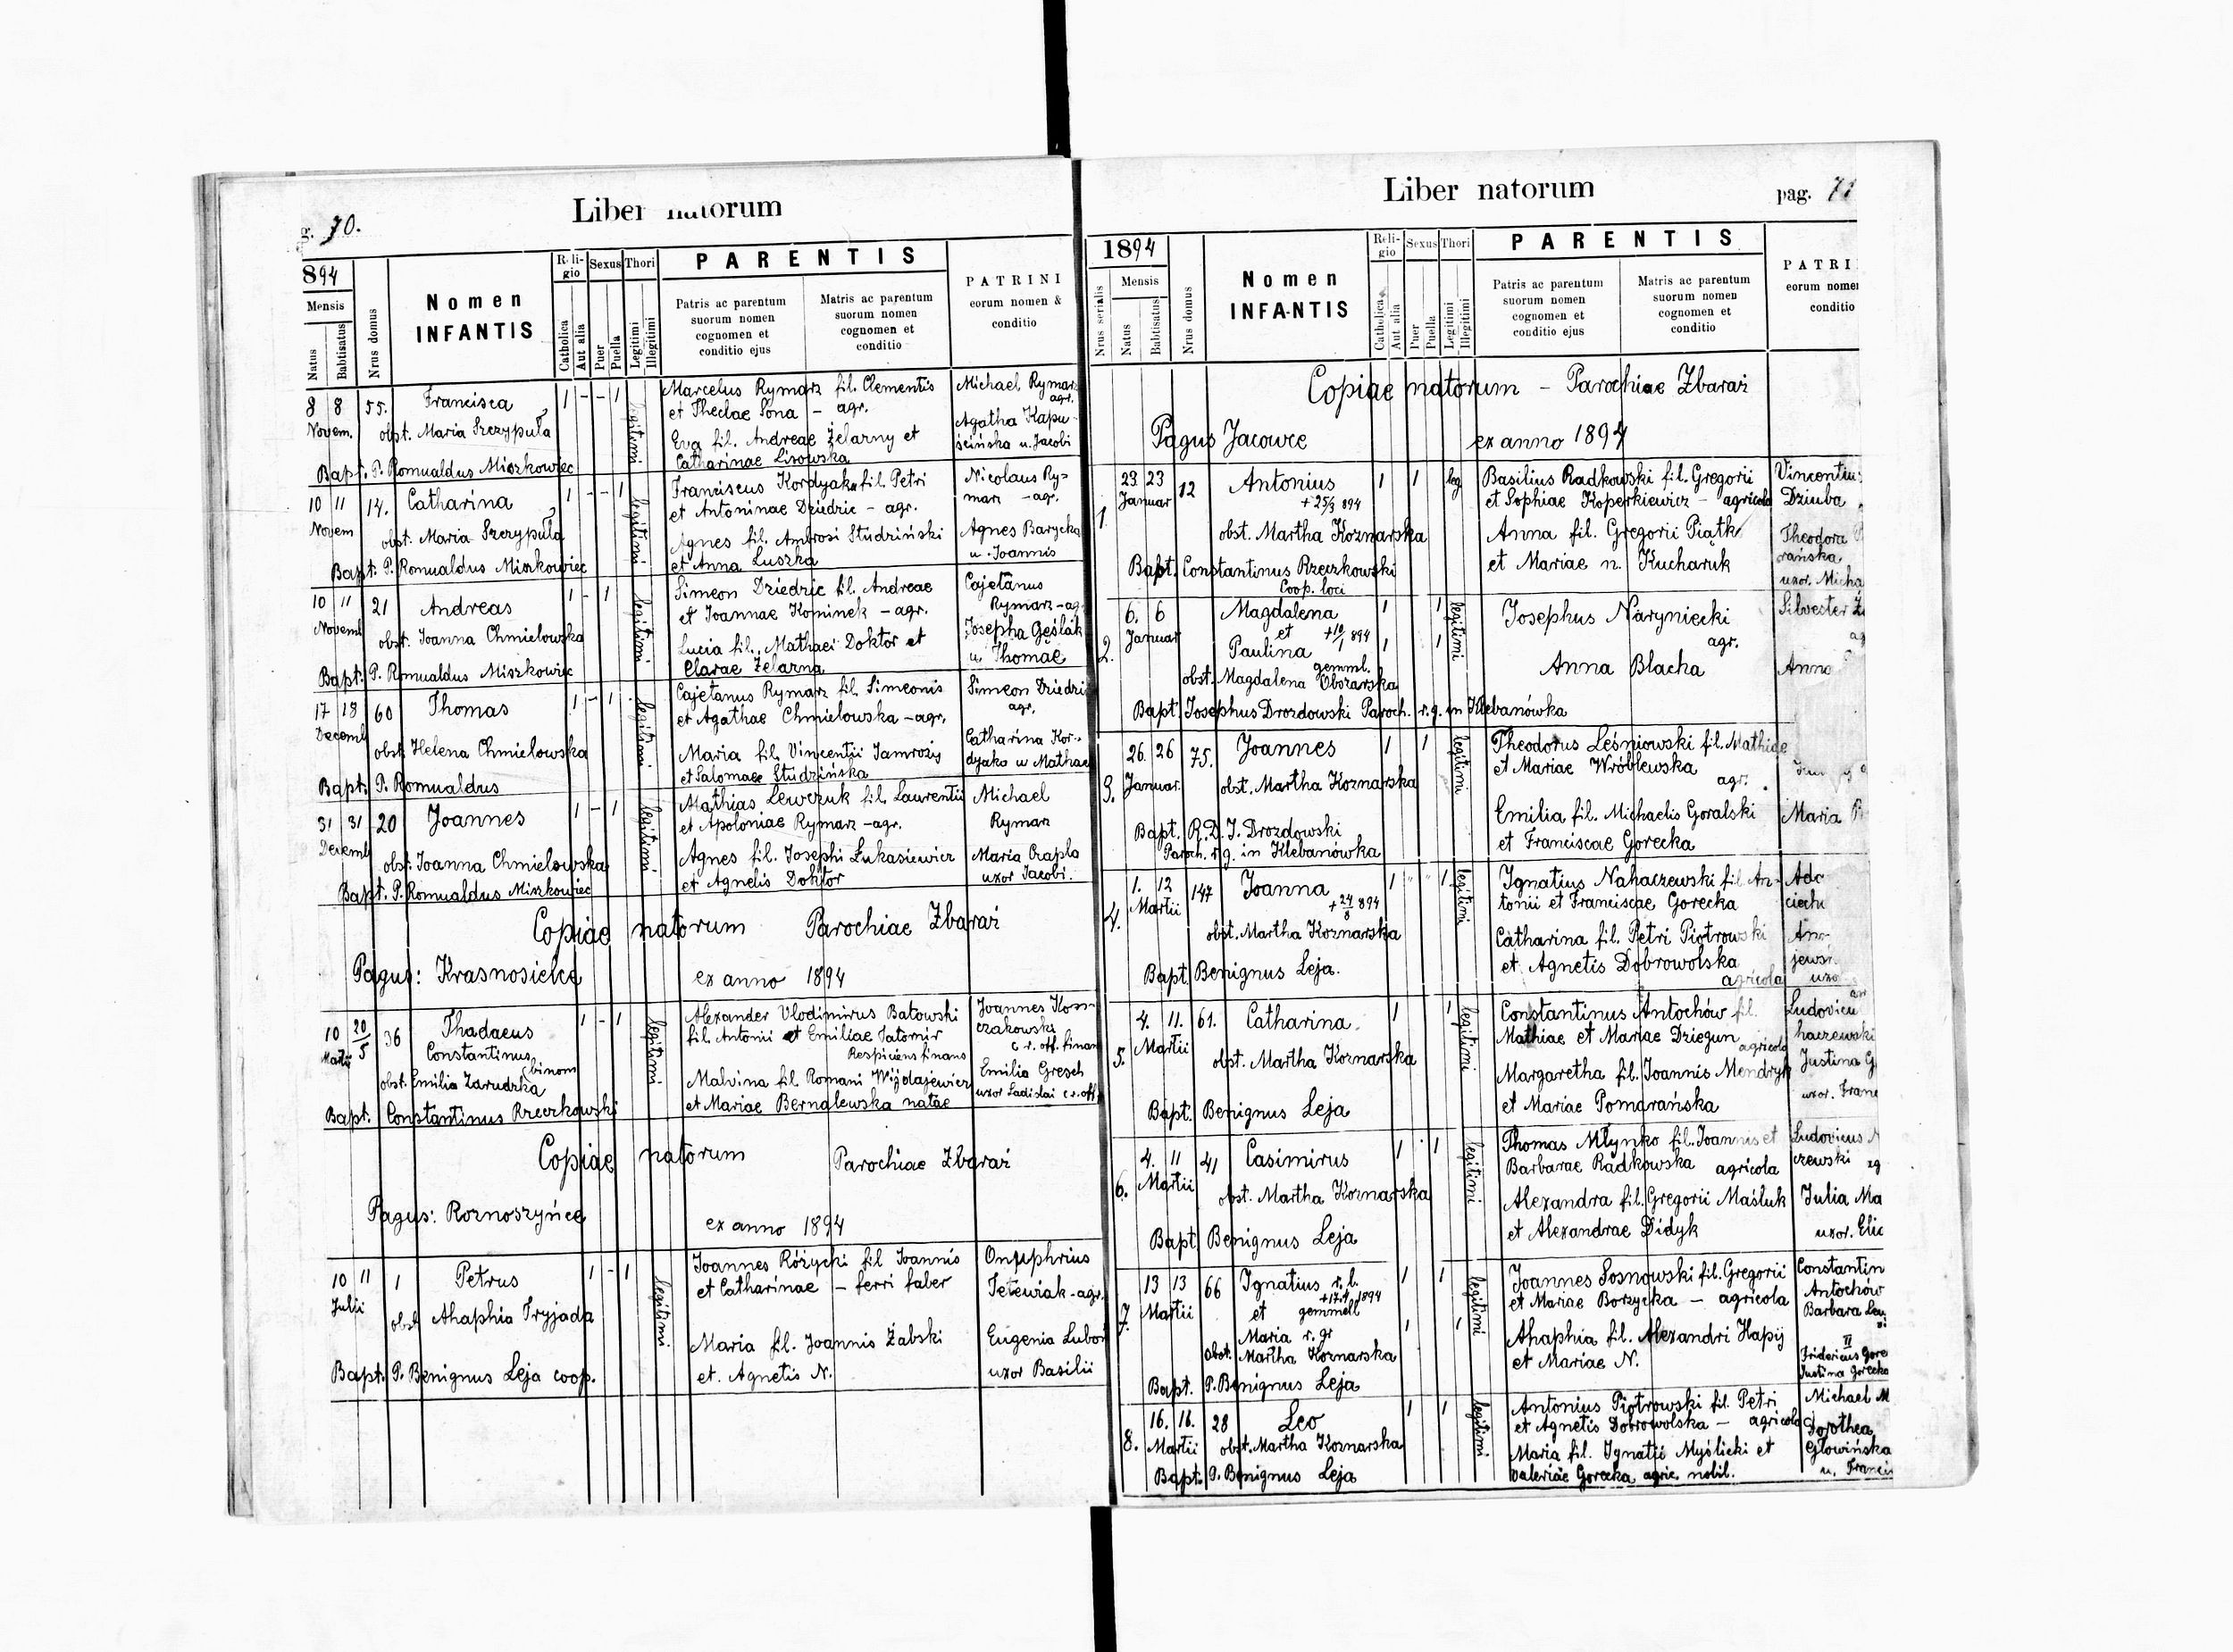 g. 70.
Liber natorum
894
Mensis
Natus
Babtisatus
Nrus domus
Nomen
INFANTIS
Reli-
gio
Catholica
Aut alia
Sexus
Puer
Puella
Thori
Legitimi
Illegitimi
PARENTIS
Patris ac parentum
suorum nomen
cognomen et
conditio ejus
Matris ac parentum
suorum nomen
cognomen et
conditio
PATRINI
eorum nomen &
conditio
8 8 55. Francisca 1 - - 1 legitimi Marcelus Rymarz fil. Clementis Michael Rymar
Novem. et Theclae Sona - agr. agr.
obst. Maria Szczypuła Eva fil. Andreae Żelarny et Agatha Kapu-
Catharinae Lisowska ścińska u. Jacobi
Bapt. P. Romualdus Miszkowiec
10 11 14. Catharina 1 - - 1 legitimi Franciscus Kordyaka fil. Petri Nicolaus Ry=
Novem et Antoninae Dziedzic - agr. marz - agr.
obst. Maria Szczypuła Agnes fil. Ambrosi Studziński Agnes Barycka
et Anna Luszka u. Joannis
Bapt. P. Romualdus Miszkowiec
10 11 21 Andreas 1 - 1 legitimi Simeon Dziedzic fil. Andreae Cajetanus
Novemb et Joannae Kominek - agr. Rymarz - ag
obst. Joanna Chmielowska Lucia fil. Mathaei Doktor et Josepha Gęślak
Clarae Żelarna u. Thomae
Bapt. P. Romualdus Miszkowiec
17 18 60 Thomas 1 - 1 legitimi Cajetanus Rymarz fil. Simeonis Simeon Dziedzi
Decemb et Agathae Chmielowska - agr. agr.
obst. Helena Chmielowska Maria fil. Vincentii Jamrozy Catharina Kor-
et Salomae Studzińska dyaka u Mathae
Bapt. P. Romualdus
31 31 20 Joannes 1 - 1 legitimi Mathias Lewczuk fil. Laurentii Michael
Decemb et Apoloniae Rymarz - agr. Rymarz
obst. Joanna Chmielowska Agnes fil. Josephi Łukasiewicz Maria Czapla
et Agnelis Doktor uxor Jacobi.
Bapt. P. Romualdus Miszkowiec
Copiae natorum Parochiae Zbaraż
Pagus: Krasnosielce ex anno 1894
10 20/5 36 Thadaeus 1 - 1 legitimi Alexander Vlodimirus Batowski Joannes
Martii Constantinus binom fil. Antonii et Emiliae Jatomir czakowski
Respiciens finans c. r. off. finan
obst. Emilia Zarudzka Malvina fil Romani Emilia Gresch
et Mariae Bernalewska natae uxor Ladislai c. r. off
Bapt. Constantinus Rzeczkowski
Copiae natorum Parochiae Zbaraż
Pagus: Roznoszyńce ex anno 1894
10 11 1 Petrus 1 - 1 legitimi Joannes Różycki fil Joannis Onuphrius
Julii et Catharinae - ferri faber - agr.
obst Ahaphia Tryjada Maria fil. Joannis Żabski Eugenia
et. Agnetis N. uxor Basilii
Bapt. P. Benignus Leja coop.
Liber natorum
pag. 71
1894
Nrus serialis
Mensis
Natus
Babtisatus
Nrus domus
Nomen
INFANTIS
Reli-
gio
Catholica
Aut alia
Sexus
Puer
Puella
Thori
Legitimi
Illegitimi
PARENTIS
Patris ac parentum
suorum nomen
cognomen et
conditio ejus
Matris ac parentum
suorum nomen
cognomen et
conditio
PATRI
eorum nomen
conditio
Copiae natorum - Parochiae Zbaraż
Pagus Jacowce ex anno 1894
1. 23 23 12 Antonius 1 1 leg Basilius Radkowski fil. Gregorii Vincentiu
Januar + 25/3 894 et Sophiae Koperkiewicz - agricola Dziuba
obst. Martha Koznarska Anna fil. Gregorii Piątk Theodora
et Mariae n. Kucharuk rańska
Bapt. Constantinus Rzeczkowski uxor. Micha
Coop. loci
2. 6. 6 Magdalena 1 1 legitimi Josephus Naryniecki Silvester
Januar et +10/1 894 agr.
Paulina 1 1 Anna Blacha Anna
gemml.
obst. Magdalena Obszarska
Bapt. Josephus Drozdowski Paroch. r. g. in Klebanówka
3. 26. 26 75. Joannes 1 1 legitimi Theodorus Leśniowski fil. Mathiae
Januar et Mariae Wróblewska agr.
obst. Martha Koznarska Emilia fil. Michaelis Goralski Maria
et Franciscae Gorecka
Bapt. R. D. J. Drozdowski
Paroch. r. g. in Klebanówka
4. 1. 12 147 Joanna 1 1 legitimi Ignatius Nahaczewski fil An-
Martii + 24/8 894 tonii et Franciscae Gorecka
obst. Martha Koznarska Catharina fil. Petri Piotrowski
et Agnetis Dobrowolska
agricola
Bapt. Benignus Leja.
5. 4. 11. 61. Catharina. 1 1 legitimi Constantinus Antochów fil. Ludovicu
Martii Mathiae et Mariae Dziegun agricola haczewski
obst. Martha Koznarska Margaretha fil. Joannis Mendryk Justina G
et Mariae Pomarańska uxor. Franc
Bapt. Benignus Leja
6. 4. 11 41 Casimirus 1 1 legitimi Thomas Młynko fil. Joannis et Ludovicus
Martii Barbarae Radkowska agricola czewski
obst. Martha Koznarska Alexandra fil. Gregorii Maśluk Julia Ma
et Alexandrae Didyk uxor. Elic
Bapt. Benignus Leja
7. 13 13 66 Ignatius r. l. 1 1 legitimi Joannes Sosnowski fil. Gregorii Constantin
Martii +17/4 1894 et Mariae Borzycka - agricola Antochów
et gemmell Barbara
Maria r. gr 1 1 Ahaphia fil. Alexandri Hapij II
obst. Martha Koznarska et Mariae N. Fridericus Gore
Justina Gorecka
Bapt. P. Benignus Leja
8. 16. 18. 28 Leo 1 1 legitimi Antonius Piotrowski fil. Petri Michael M
Martii obst. Martha Koznarska et Agnetis Dobrowolska - agricola Dorothea
Maria fil. Ignatii Myślicki et Głowińska
Bapt. P. Benignus Leja Valeriae Gorecka agric. nobil. u. Franci